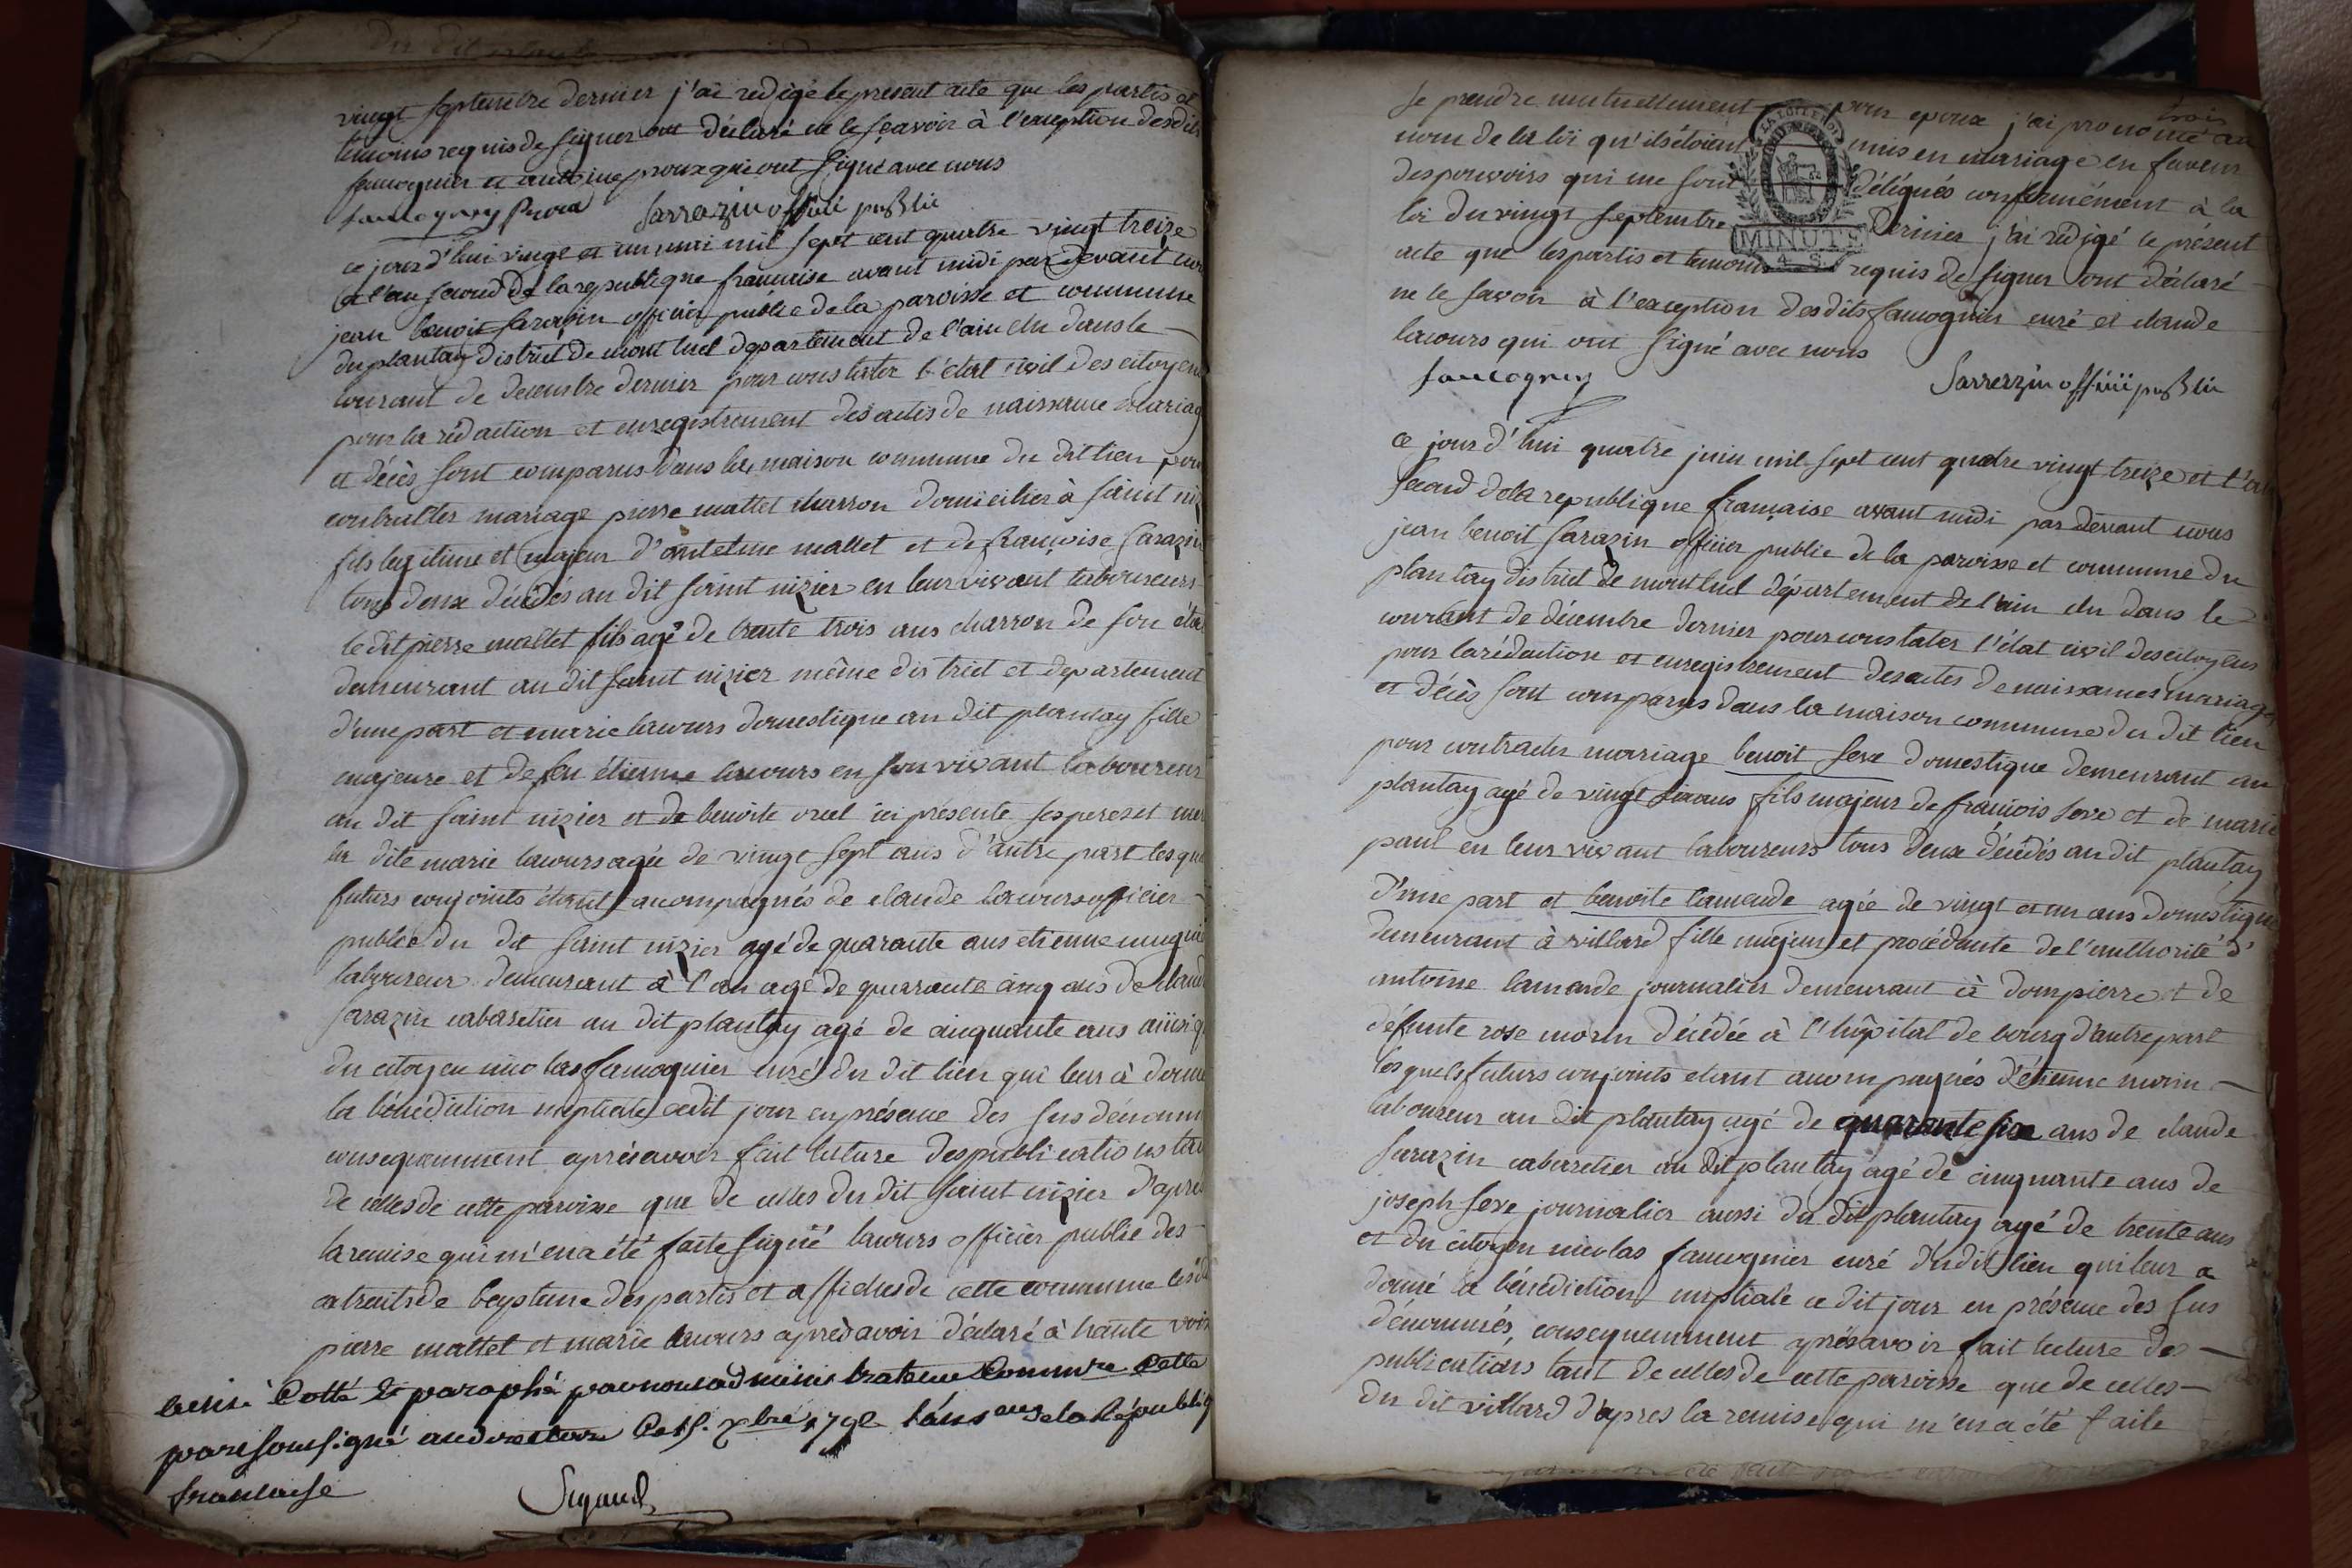 vingt septembre dernier j'ai redigé le present acte que les partis et
temoins requis de signer ont déclaré ne le sçavoir à l'exception desdits
faucognier et antoine proux qui ont signé avec nous
faucogney Sarrazin officié publié
ce jourd'hui vingt et un mai mil sept cent quatre vingt treize
et l'an second de la republique francaise avant midi par devant nous
jean benoit sarazin officier public de la paroisse et commune
du plantay district de mont luel departement de l'ain elu dans le
courant de decembre dernier pour constater l'état civil des citoyens
pour la rédaction et enregistrement des actes de naissance mariage
et décès sont comparus dans la maison commune du dit lieu pour
contracter mariage pierre mallet charron domicilier à saint niz
fils legitime et majeur d'antelme mallet et de françoise sarazin
tous deux décédés au dit saint nizier en leur vivant laboureurs
le dit pierre mallet fils agé de trente trois ans charron de son état
demeurant au dit saint nizier même district et departement
d'une part et marie lacours domestique au dit plantay fille
majeure et de feu étienne lacours en son vivant laboureur
au dit saint nizier et de benoite ici présente ses peres et mer
la dite marie lacours agée de vingt sept ans d'autre part lesque
futurs conjoints étant acompagnés de claude lacours officier
public du dit saint nizier agé de quarante ans etienne
laboureur demeurant à agé de quarante cinq ans de claude
sarazin cabaretier au dit plantay agé de cinquante ans ainsi q
du citoyen nicolas faucognier curé du dit lieu qui leur à donné
la bénédiction nuptiale cedit jour en présence des sus dénomm
consequemment aprés avoir fait lecture des publications tan
de celles de cette paroisse que de celles du dit saint nizier d'après
la remise qui m'en a été faite signé lacours officier public des
extraits de beptême des partis et affiches de cette commune les d
pierre mallet et marie lacours après avoir déclaré à haute voix
Cotté et paraphé par nous administrateur Commre
soussigné au directoire Ce 15. xbre 1792 l'an 1er de la Républiq
francaise
Sigaud
se prendre mutuellement pour epoux j'ai prononcé au
trois
nom de la loi qu'ils étoient unis en mariage en faveur
des pouvoirs qui me sont délégués conformément à la
loi du vingt septembre dernier j'ai rédigé le présent
acte que les partis et temoins requis de signer ont déclaré
ne le savoir à l'exception des dits faucognier curé et claude
lacours qui ont signé avec nous
LA LOI ET LE ROI
MINUTE
4. S.
faucogney Sarrazin officié publié
ce jourd'hui quatre juin mil sept cent quatre vingt treize et l'an
second de la republique française avant midi par devant nous
jean benoit sarazin officier public de la paroisse et commune du
plantay district de montluel département de l'ain elu dans le
courant de décembre dernier pour constater l'état civil des citoyens
pour la rédaction et enregistrement des actes de naissances mariages
et décès sont comparus dans la maison commune du dit lieu
pour contracter mariage benoit seve domestique demeurant au
plantay agé de vingt six ans fils majeur de françois seve et de marie
paul en leur vivant laboureurs tous deux décédés au dit plantay
d'une part et benoite lamende agée de vingt et un ans domestique
demeurant à villard fille majeure et procédante de l'authorité d'
antoine lamende journalier demeurant à dompierre et de
défunte rose morin décédée à l'hôpital de bourg d'autre part
lesquels futurs conjoints etant acompagnés d'étienne morin
laboureur au dit plantay agé de quarante six ans de claude
sarazin cabaretier au dit plantay agé de cinquante ans de
joseph seve journalier aussi du dit plantay agé de trente ans
et du citoyen nicolas faucognier curé dudit lieu qui leur a
donné la bénédiction nuptiale ce dit jour en présence des sus
dénommés, consequemment aprés avoir fait lecture des
publications tant de celles de cette paroisse que de celles
du dit villard d'apres la remise qui m'en a été faite